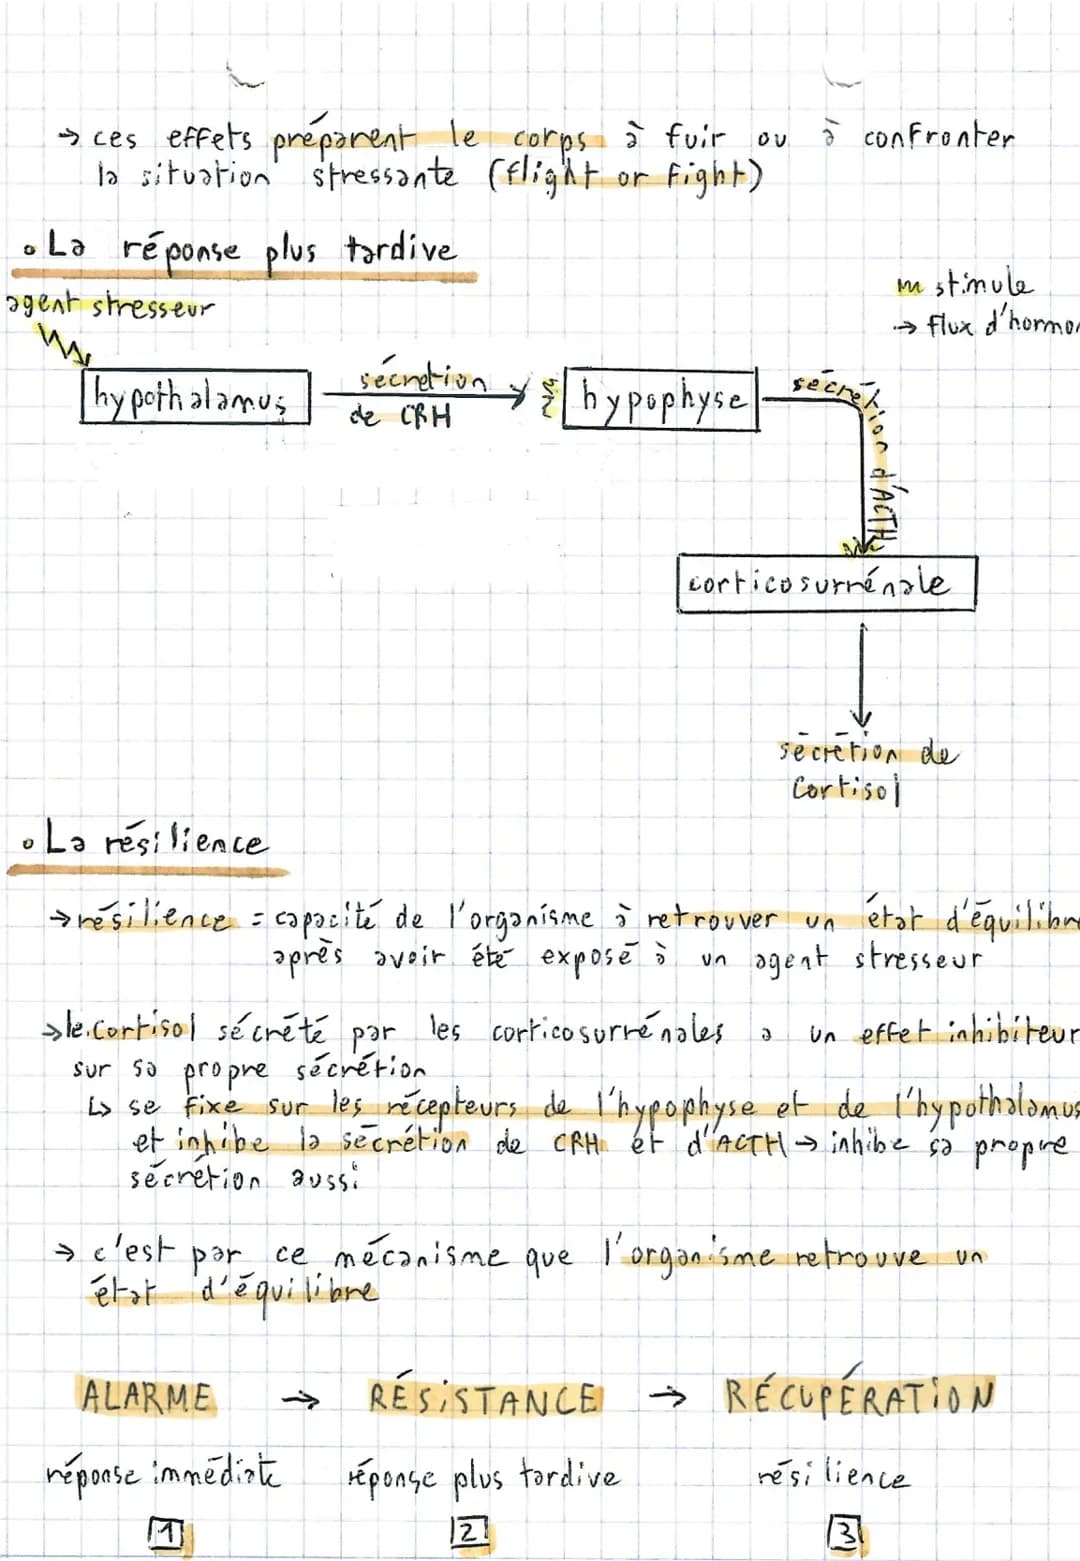 → ces effets préparent le corps à fuir ou à confronter
la situation stressante (flight or fight)
• La réponse plus tardive
agent stresseur
stimule
→ flux d'hormon
hypothalamus
sécrétion
de CRH
hypophyse
sécrétion d'ACTH
corticosurrénale
sécrétion de
Cortisol
• La résilience
→ résilience = capacité de l'organisme à retrouver un état d'équilibre
après avoir été exposé à un agent stresseur
→ le cortisol sécrété par les corticosurrénales a un effet inhibiteur
sur sa propre sécrétion
↳ se fixe sur les récepteurs de l'hypophyse et de l'hypothalamus
et inhibe la sécrétion de CRH et d'ACTH → inhibe sa propre
sécrétion aussi
→ c'est par ce mécanisme que l'organisme retrouve un
état d'équilibre
ALARME → RÉSISTANCE → RÉCUPÉRATION
réponse immédiate réponse plus tardive résilience
1 2 3